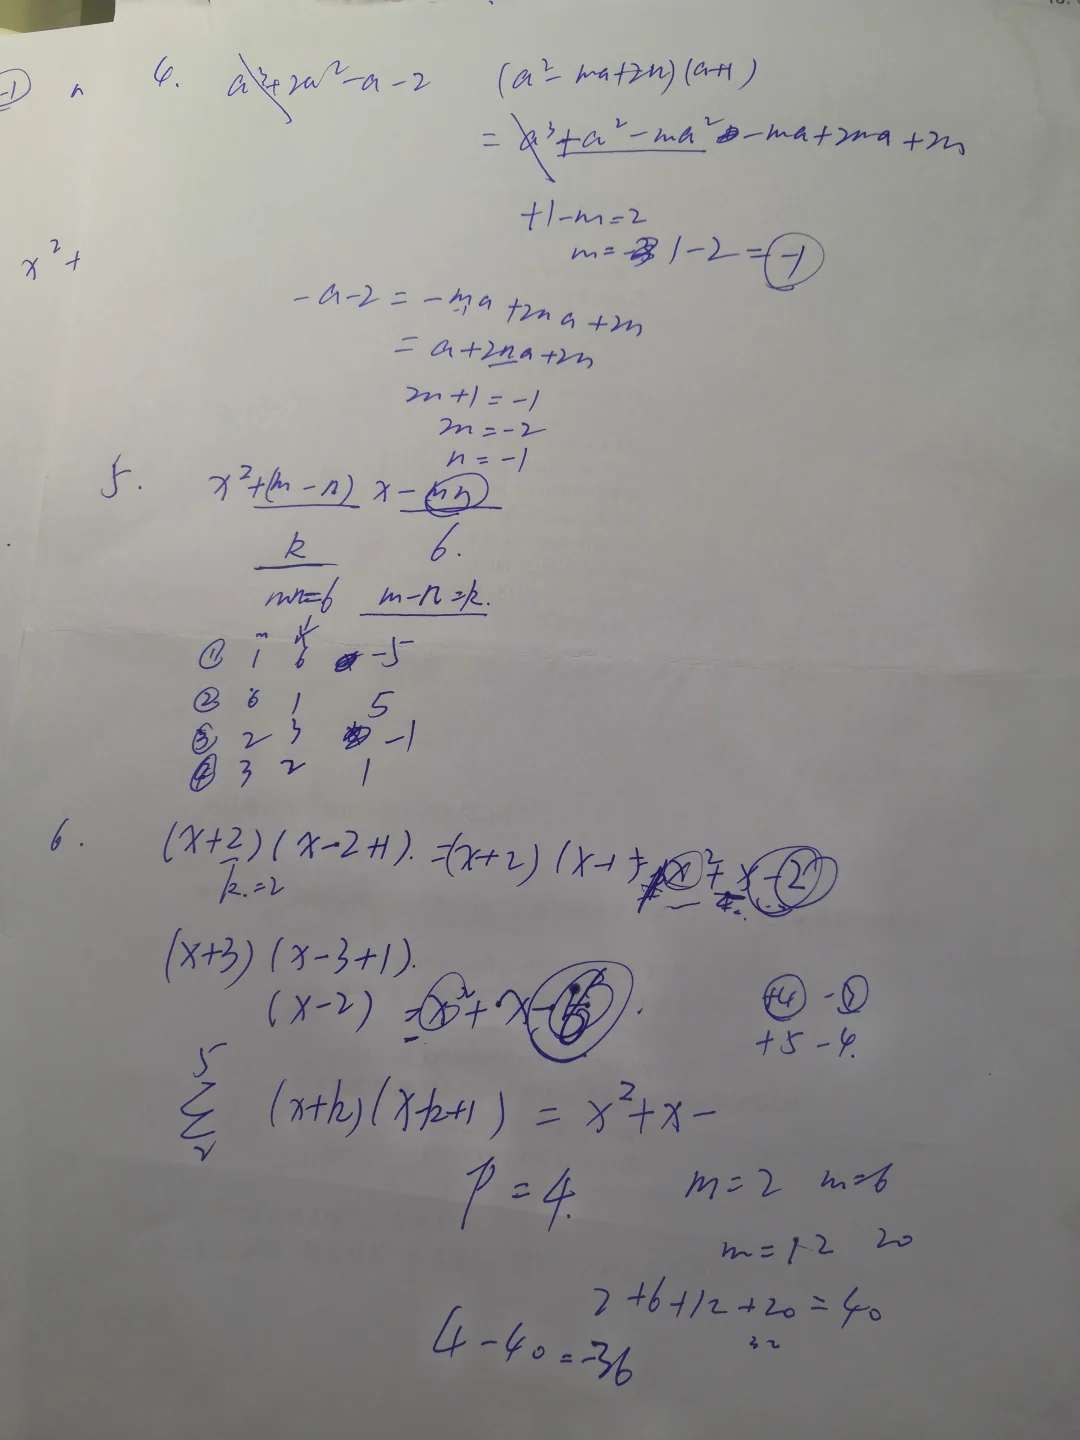 -1 n
4. a³+2a²-a-2 (a²-ma+2n)(a+1)
= a³+a²-ma²-ma+2na+2n
+1-m=2
x²+
m= 1-2=-1
-a-2=-ma+2na+2n
-1
=a+2na+2n
2n+1=-1
2n=-2
n=-1
5. x²+(m-n)x-mn
k 6.
mn=6 m-n=k.
m n
① 1 6 -5
② 6 1 5
③ 2 3 -1
④ 3 2 1
6. (x+2)(x-2+1).=(x+2)(x-1)=x²+x-2
k.=2
(x+3)(x-3+1).
(x-2) =x²+x-6.
+4 -3
+5-4.
5
∑ (x+k)(x-k+1)=x²+x-
2
P=4. m=2 m=6
m=12 20
2+6+12+20=40
32
4-40=-36